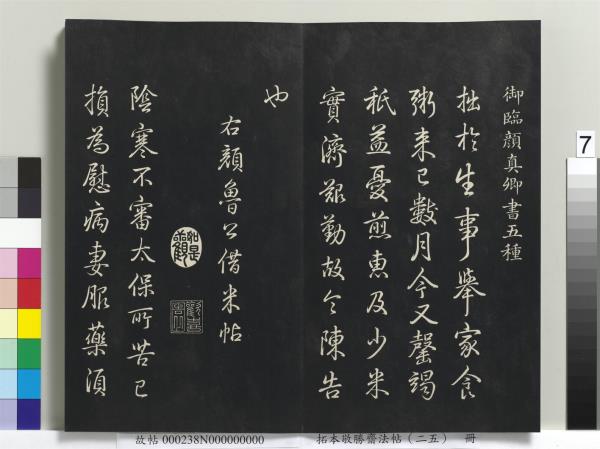 御臨顏真卿書五種
拙於生事舉家食
粥来已數月今又罄竭
秖益憂煎惠及少米
實濟艱勤故令陳告
也
右顏魯公借米帖
如是
觀
陰寒不審太保所苦已
損為慰病妻服藥須
7
故帖 000238N000000000
拓本敬勝齋法帖（二五） 冊